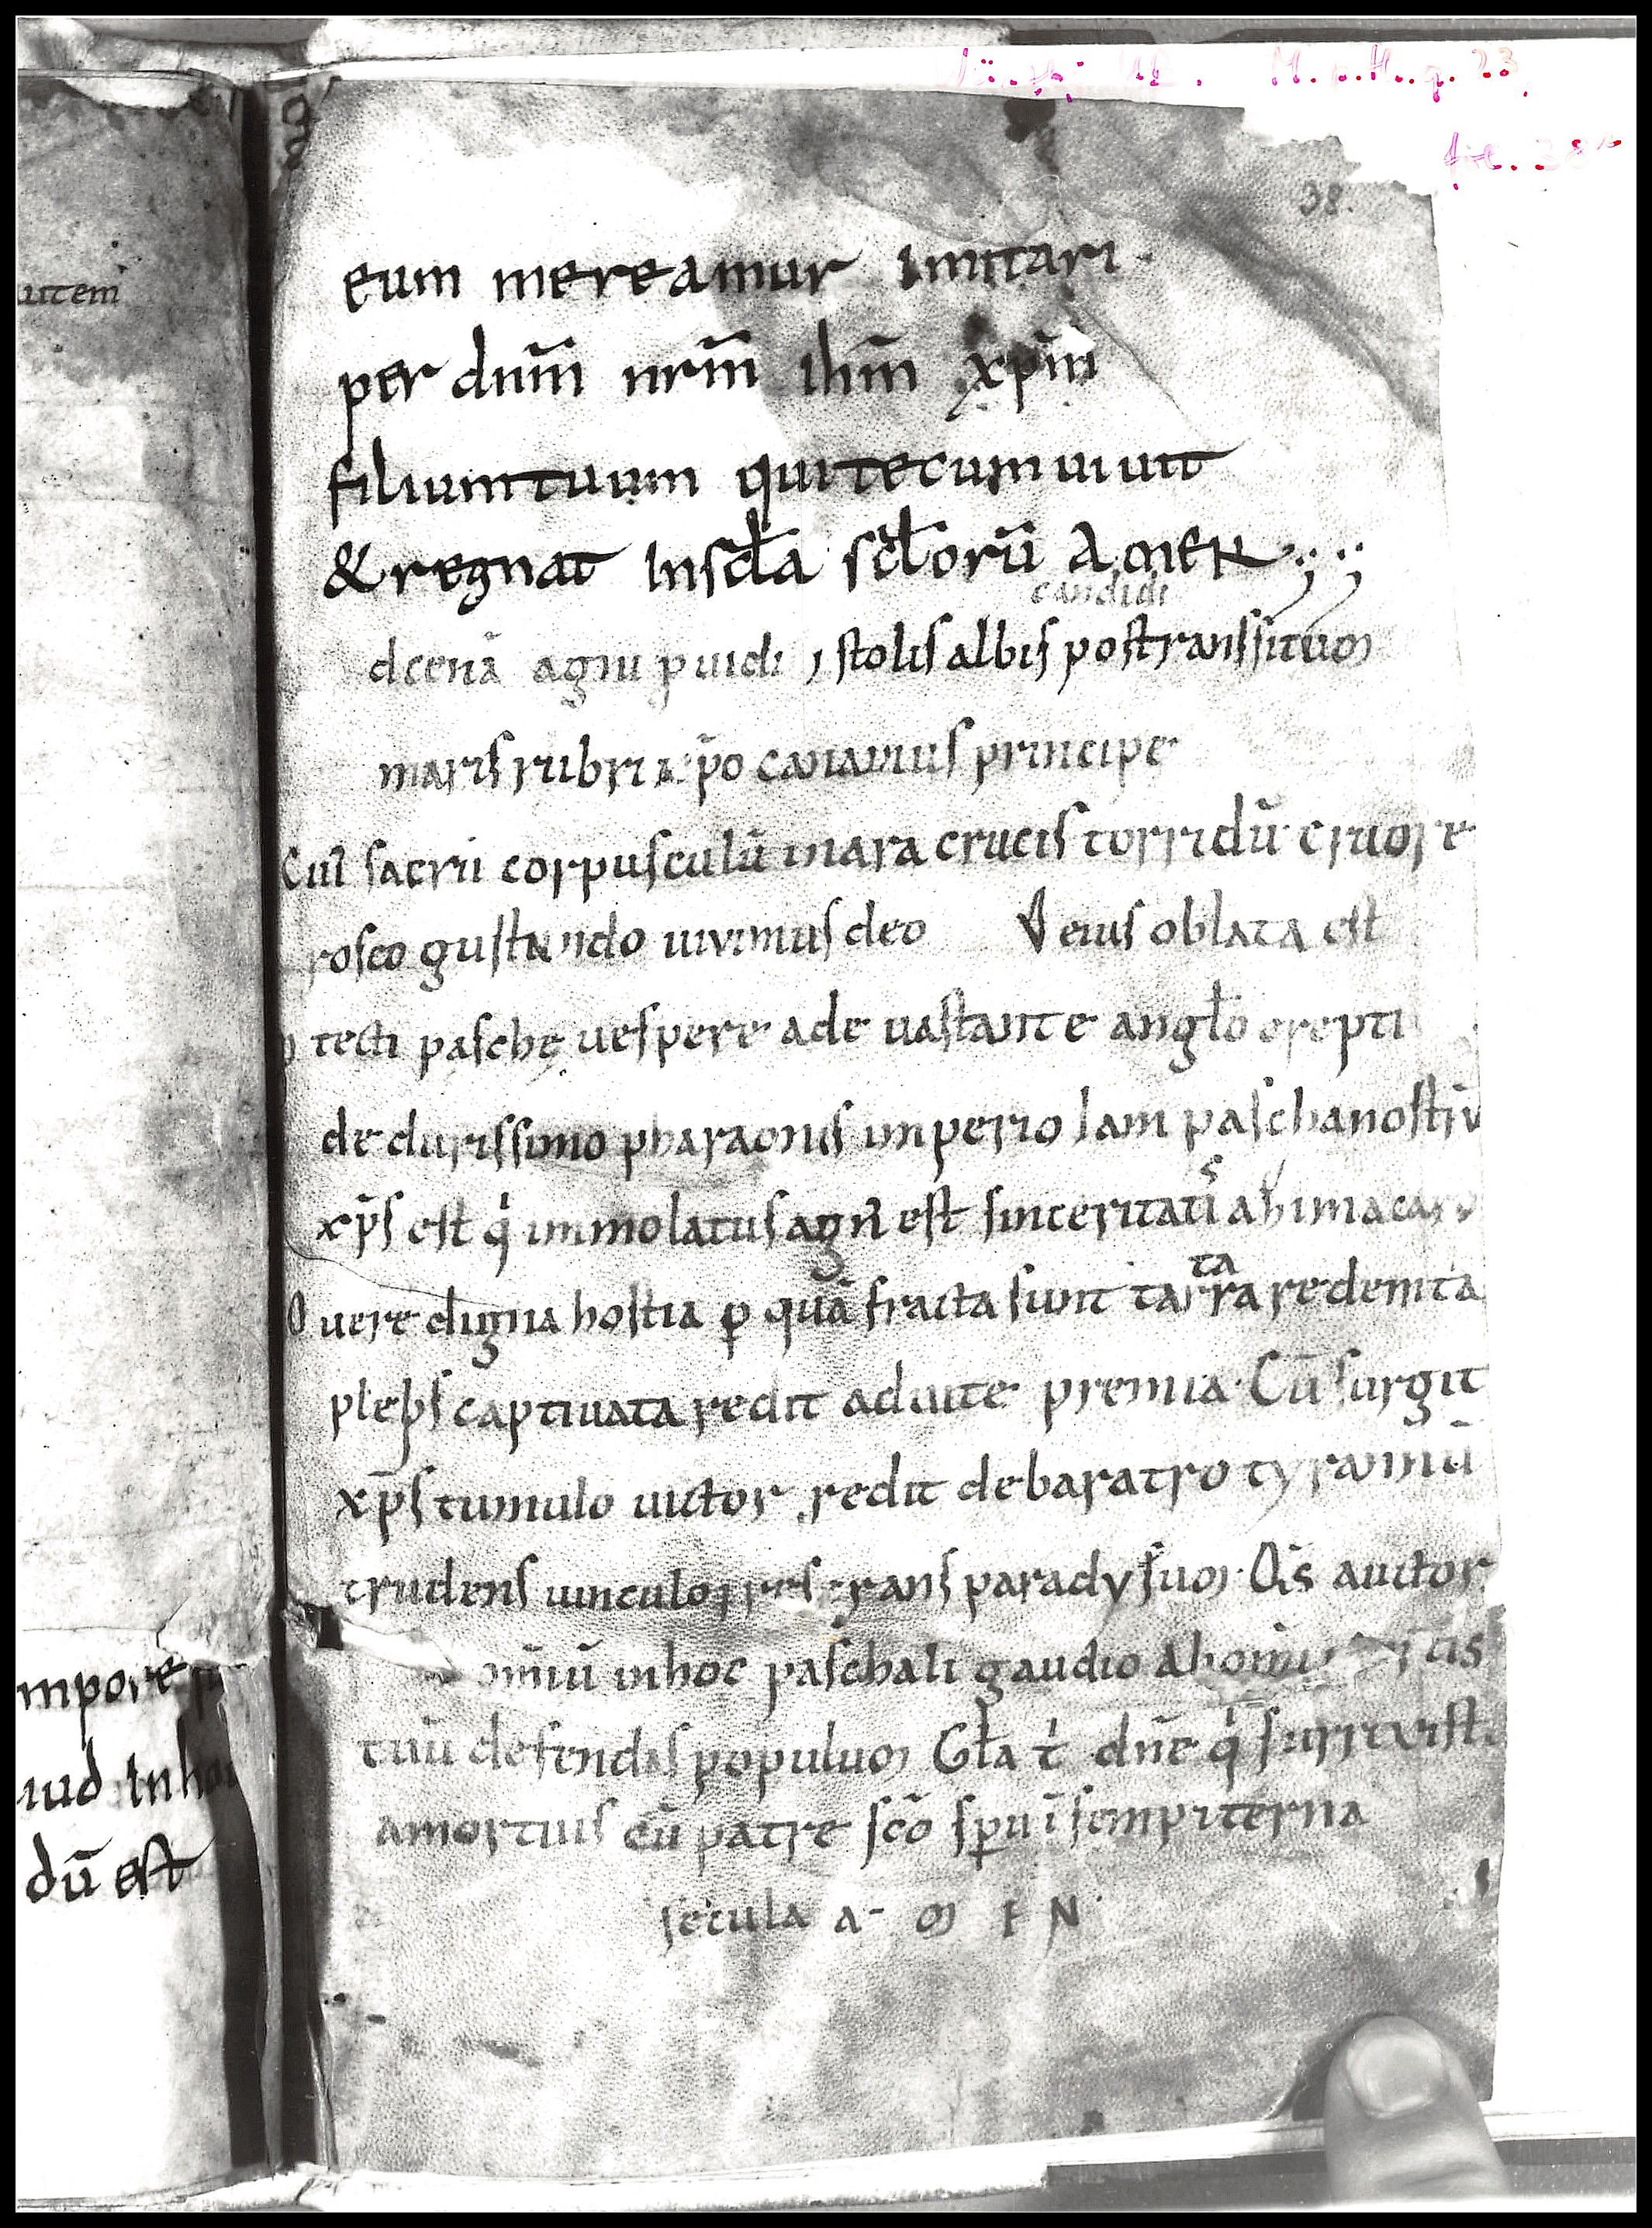 M. p. th. q. 23
fol. 38r
38.
utem
eum mereamur imitari.
per dnm̄ nrm̄ ihm̄ xpm̄
filium tuum qui tecum uiuit
& regnat In scła scłorū AMEN
candidi
d cenā agni ꝓuidi, stolis albis post transsitum
maris rubri xp̄o canamus principe
Cui᾽ sacrū corpusculū inara crucis torridū cruore
roseo gustando uiuimus deo V eius oblata est
p tecti paschę uespere ade uastante angło erepti
de durissimo pharaonis imperio Iam pascha nostrū
xp̄s est q̇ immolatus agn᾽ est sinceritatis ahima caro
O uere digna hostia ꝑ quā fracta sunt tartara redemta
plebs captiuata redit aduite premia. Cū surgit
xp̄s tumulo uictor redit debaratro tyrannū
trudens uinculo reserans paradysum. Qs̄ auctor
omniū inhoc paschali gaudio Ab omni mortis
tuū defendas populum Gła t̄ dn̄e q̇ surrexisti
amortuis cū patre scō sp̄u ī sempiterna
secula a- m E N
mpore
uud inho
dū est